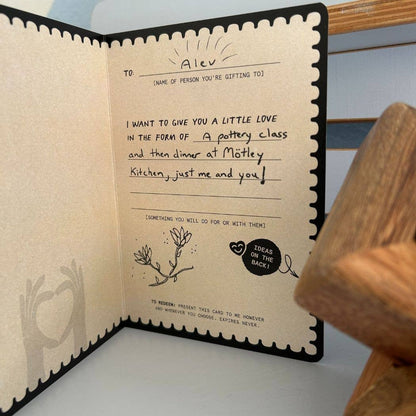 TO: Alev
[NAME OF PERSON YOU'RE GIFTING TO]
I WANT TO GIVE YOU A LITTLE LOVE
IN THE FORM OF A pottery class
and then dinner at Mötley
Kitchen, just me and you!
[SOMETHING YOU WILL DO FOR OR WITH THEM]
IDEAS
ON THE
BACK!
TO REDEEM: PRESENT THIS CARD TO ME HOWEVER
AND WHENEVER YOU CHOOSE. EXPIRES NEVER.